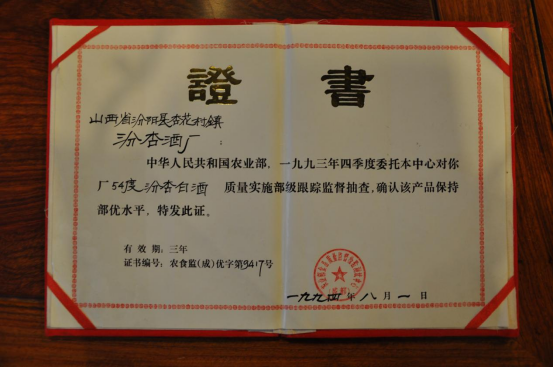 證書
山西省汾阳县杏花村鎮
汾杏酒厂
中华人民共和国农业部，一九九三年四季度委托本中心对你
厂54度汾杏白酒 质量实施部级跟踪监督抽查，确认该产品保持
部优水平，特发此证。
有效期：三年
证书编号：农食监(成)优字第9417号
一九九四年八月一日